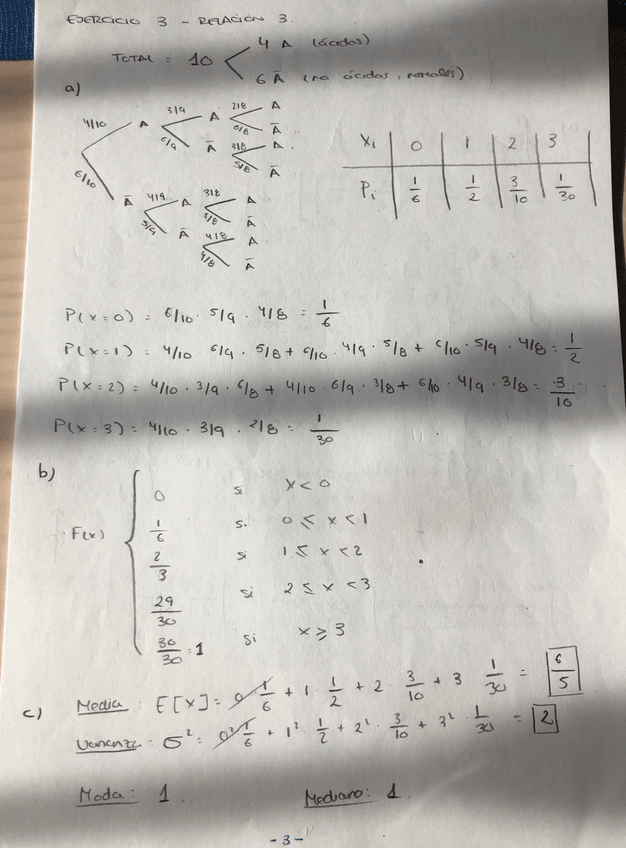 EJERCICIO 3 - RELACIÓN 3.
TOTAL = 10 < 4 A (ácidos)
6 Ā (no ácidos, normales).
a)
4/10 A 3/9 A 2/8 A
6/8 Ā
6/9 Ā 3/8 A
5/8 Ā
6/10 Ā 4/9 A 3/8 A
5/8 Ā
5/9 Ā 4/8 A
4/8 Ā
Xi | 0 | 1 | 2 | 3
Pi | 1/6 | 1/2 | 3/10 | 1/30
P(x=0) = 6/10 · 5/9 · 4/8 = 1/6
P(x=1) = 4/10 · 6/9 · 5/8 + 6/10 · 4/9 · 5/8 + 6/10 · 5/9 · 4/8 = 1/2
P(x=2) = 4/10 · 3/9 · 6/8 + 4/10 · 6/9 · 3/8 + 6/10 · 4/9 · 3/8 = 3/10
P(x=3) = 4/10 · 3/9 · 2/8 = 1/30
b)
F(x) {
0 si x < 0
1/6 si 0 ≤ x < 1
2/3 si 1 ≤ x < 2
29/30 si 2 ≤ x < 3
30/30 = 1 si x ≥ 3
c) Media : E[X] = 0 · 1/6 + 1 · 1/2 + 2 · 3/10 + 3 · 1/30 = 6/5
Varianza : σ² = 0² · 1/6 + 1² · 1/2 + 2² · 3/10 + 3² · 1/30 = 2
Moda : 1. Mediana : 1.
- 3 -